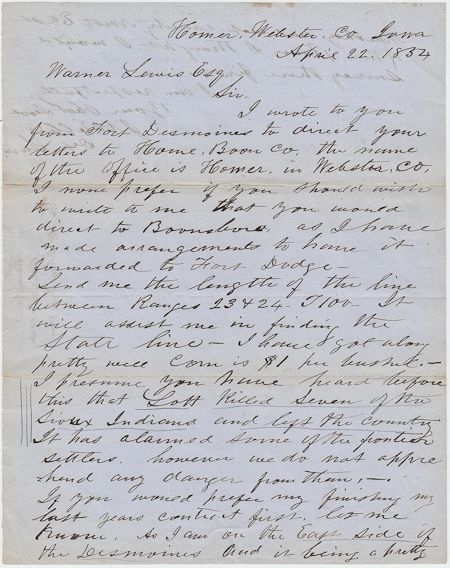 Homer, Webster, Co, Iowa
April 22. 1834
Warner Lewis Esq
Sir.
I wrote to you
from Fort Desmoines to direct your
letters to Home, Boon Co, the name
of the office is Homer, in Webster, Co,
I now prefer if you should wish
to write to me that you would
direct to Boonsboro, as I have
made arrangements to have it
forwarded to Fort Dodge—
Send me the length of the line
between Ranges 23 & 24 T100— It
will assist me in finding the
State line— I have got along
pretty well Corn is $1 per bushel.—
I presume you have heard before
this that Lott Killed Seven of the
Sioux Indians and left the country
It has alarmed some of the frontier
settlers. however we do not appre
hend any danger from them,—.
If you would prefer my finishing my
last years contract first. let me
know. As I am on the East side of
the Desmoines and it being a pretty